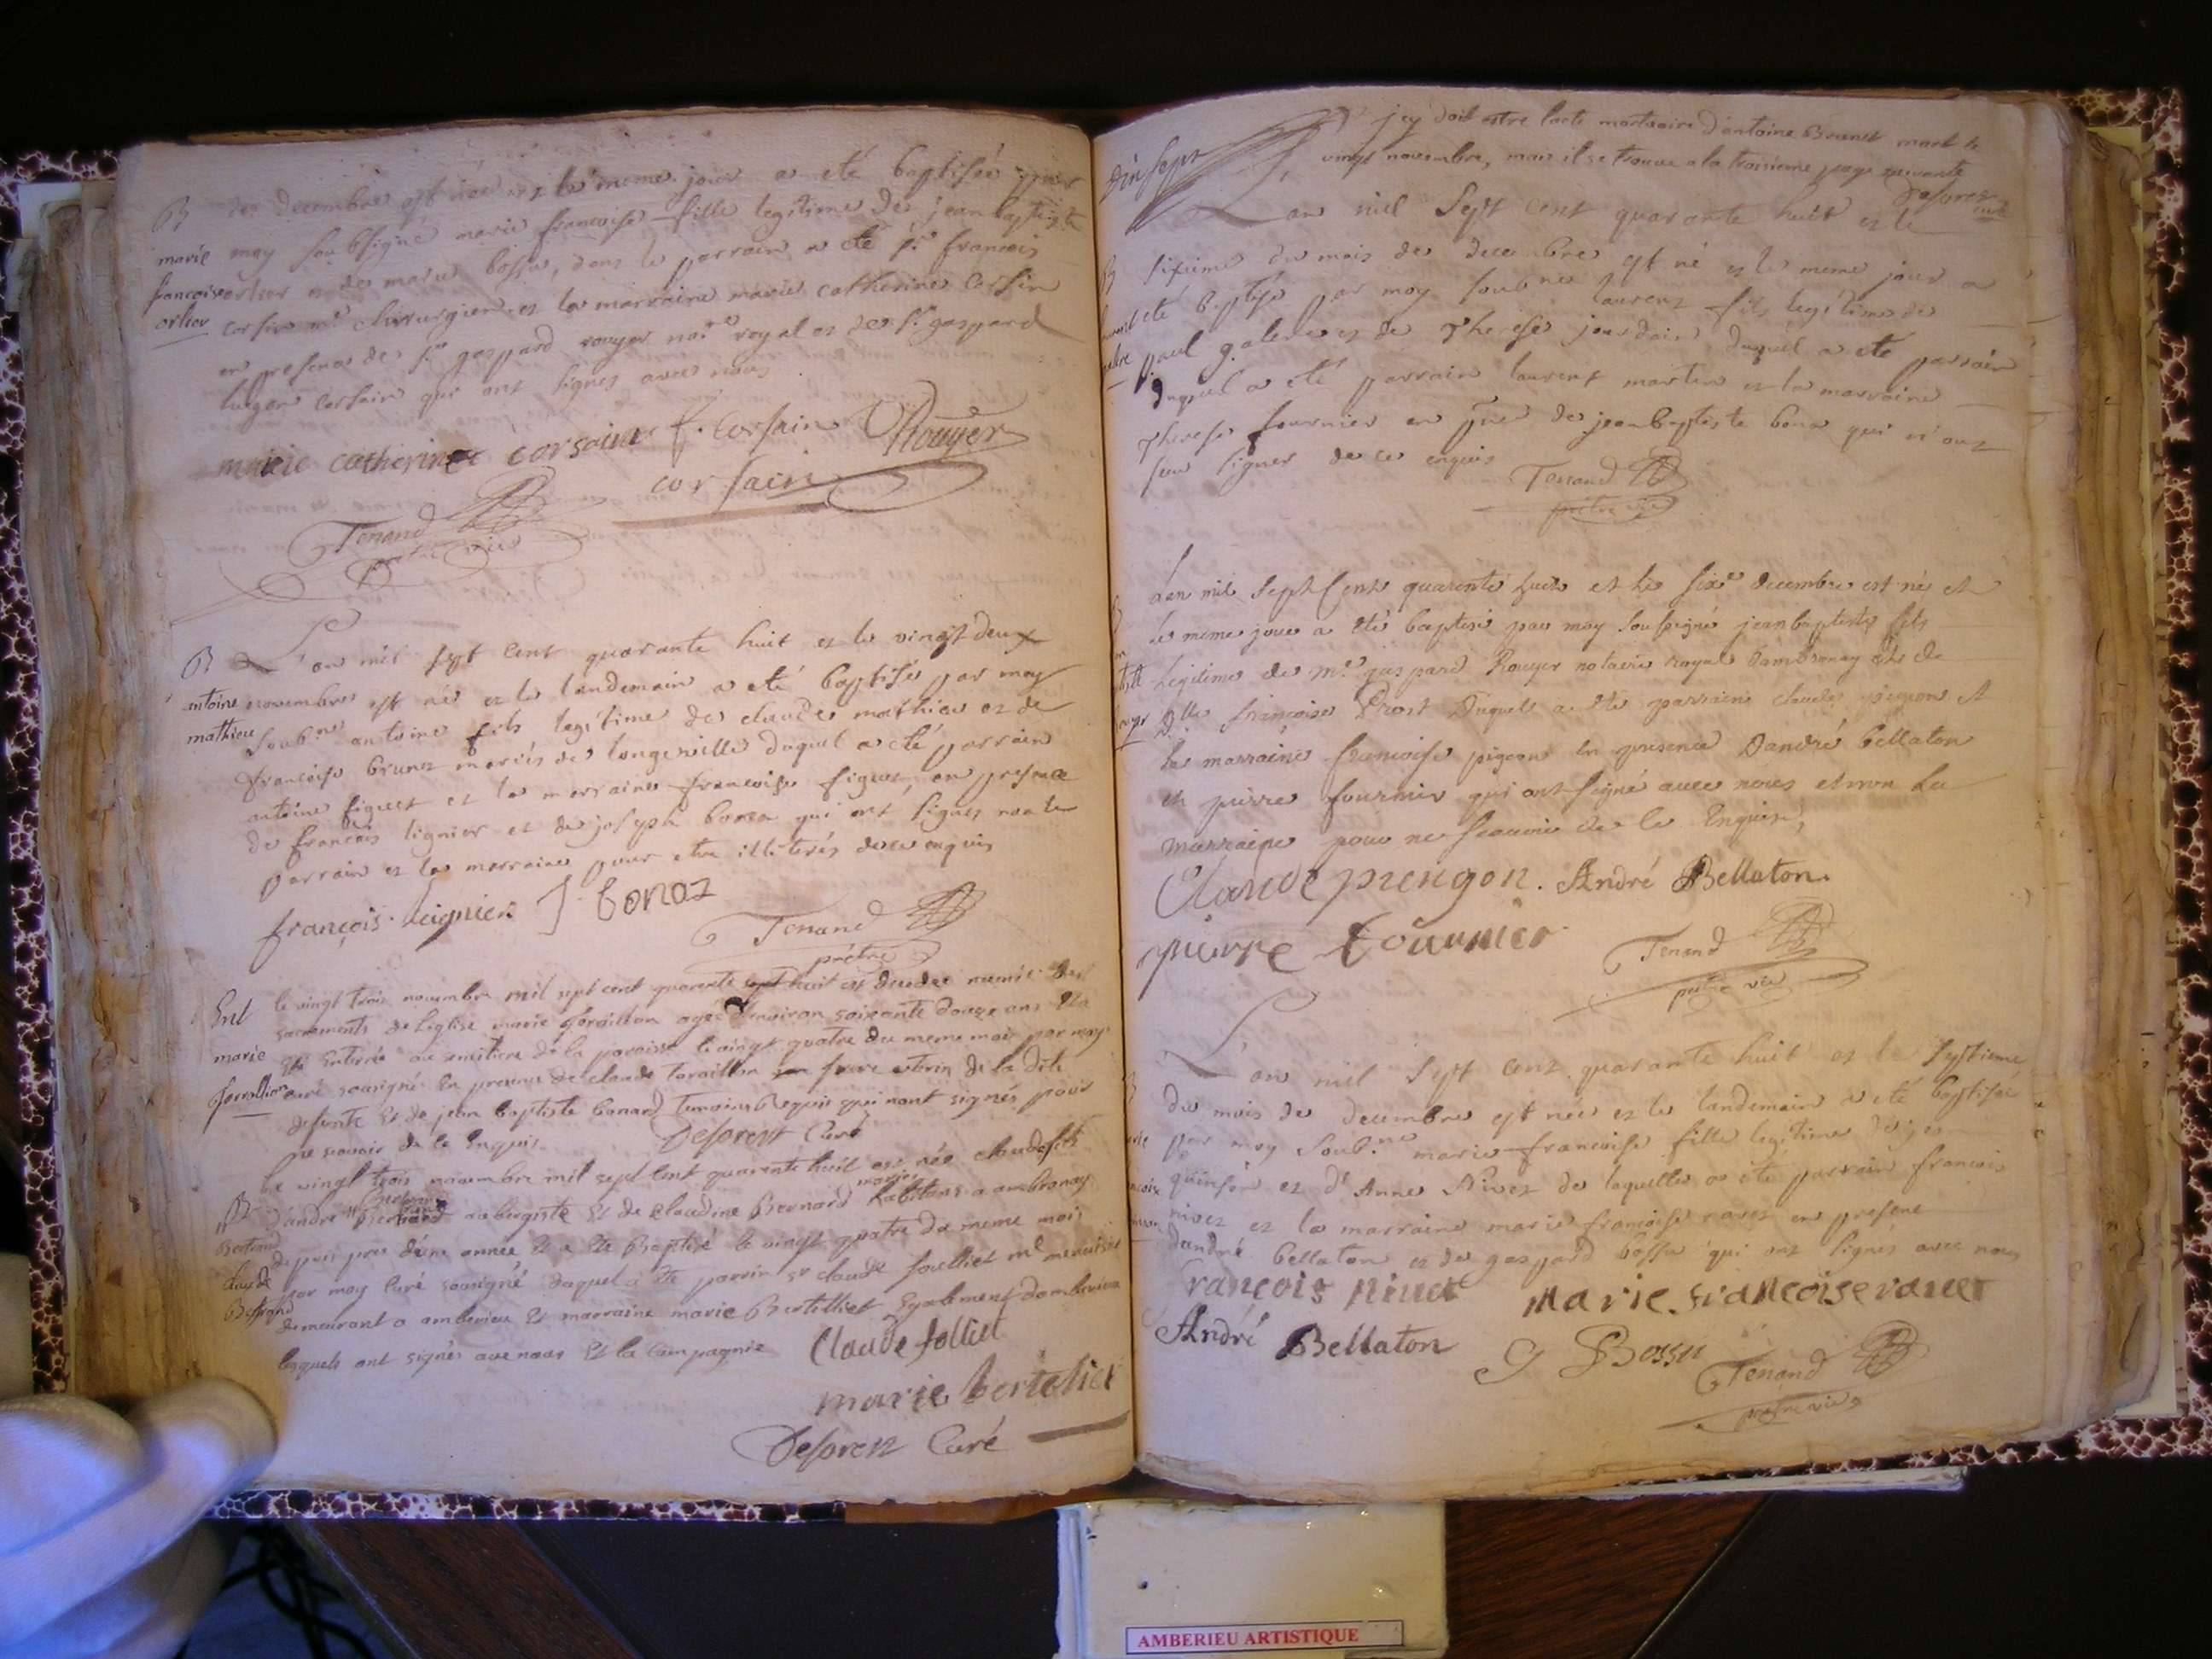 B
marie
francoise
orlier
decembre est née et le meme jour a eté baptisée par
moy soubsigné marie francoise fille legitime de jean baptiste
orlier et de marie bossu, dont le parrain a eté sr francois
corsin me chirurgien et la marraine marie catherine corsin
en presence de sr gaspard rouyer nore royal et de sr gaspard
corsain qui ont signes avec nous
marie catherine corsain f. corsain Rouyer
corsain
Tenand
pretre vic
B
antoine
mathieu
L'an mil sept cent quarante huit et le vingt deux
novembre est né et le landemain a eté baptisé par moy
soubne antoine fils legitime de claude mathieu et de
francoise brunet mariés de longeville duquel a eté parrain
antoine figuet et la marraine francoise figuet, en presence
de francois lignier et de joseph bonaz qui ont signes non le
parrain et la marraine pour etre illiterés de ce enquis
françois leignier J. bonaz
Tenand
pretre
Ent
marie
le vingt trois novembre mil sept cent quarante sept huit est decedee munie des
sacrements de Leglise marie goraillon agée d'environ soixante douze ans Et a
eté Enterée au semitiere de la paroisse le vingt quatre du meme mois par moy
curé sousigné En presence de claude Goraillon son frere uterin de la dite
defunte Et de jean baptiste bonard temoins Requis qui nont signés pour
ne scavoir de ce Enquis. Desorest Curé
B
Bertrand
claude
Bertrand
Le vingt trois novembre mil sept cent quarante huit est née claude fils
d'andré Bertrand aubergiste Et de claudine Bernard mariés habitans a ambronay
depuis pres d'une année Et a eté Baptisé le vingt quatre du meme mois
par moy Curé sousigné duquel a eté parrin sr claude folliet me menuisier
demeurant a amberieu Et marraine marie Bertelliet Egalement damberieux
lesquels ont signés avec nous Et la Compagnie Claude folliet
marie berteliet
Desorest Curé
Dix sept
jcy doit estre lacte mortuaire d'antoine Brunet mort le
vingt novembre, mais il se trouve a la troisieme page suivante
Desorest
curé
L'an mil Sept cent quarante huit et le
sixieme du mois de decembre est né et le meme jour a
eté baptisé par moy soubne laurent fils legitime de
paul galere et de Therese jourdain duquel a eté parrain
duquel a eté parrain laurent martin et la marraine
Therese fournier en pnce de jean baptiste bona qui n'ont
sceu signer de ce enquis
Tenand
pretre vic
Lan mil Sept Cent quarente huit et le sixe decembre est né et
Le meme jour a eté baptisé par moy Soussigné jean baptiste fils
Legitime de Me gaspard Rouyer notaire Royal d'ambronay et de
Dlle françoise Prost Duquel a eté parrain claude pigeon et
la marraine francoise pigeon en presence D'andré bellaton
et pierre fournier qui ont signé avec nous et non la
marraine pour ne scavoir de ce Enquise,
Claude prengon. André Bellaton.
pierre fournier
Tenand
pretre vic
L'an mil Sept cent quarante huit et le septieme
du mois de decembre est née et le landemain a eté baptisée
par moy soubne marie francoise fille legitime de jean
quinson et de Anne Nivet de laquelle a eté parrain francois
nivet et la marraine marie francoise ravet en presence
dandré bellaton et de gaspard bossu qui ont signes avec nous
François Nivet Marie. françoise ravet
André Bellaton G Bossu
Tenand
pretre vic
AMBERIEU ARTISTIQUE